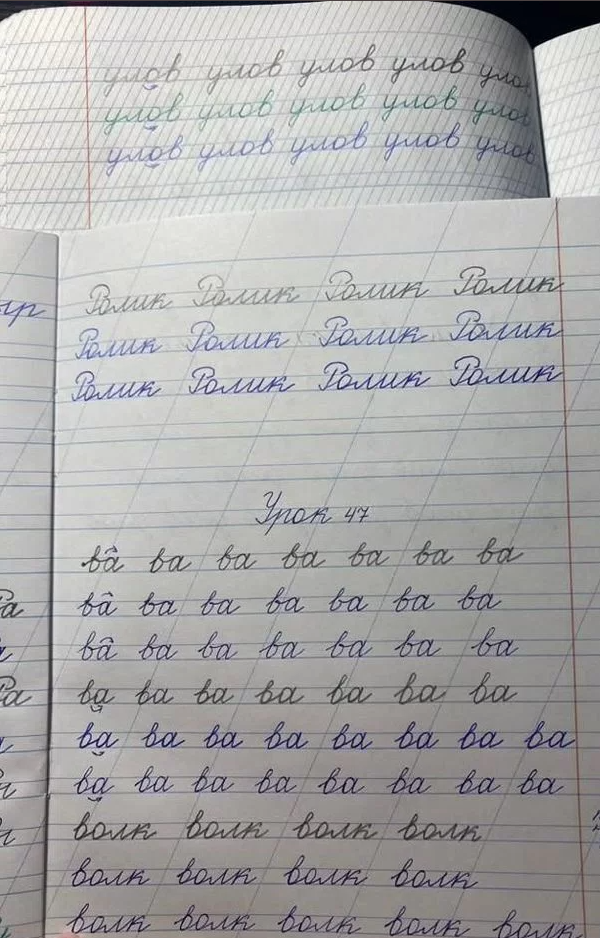 улов улов улов улов уло
улов улов улов улов улов
улов улов улов улов улов
Ролик Ролик Ролик Ролик
Ролик Ролик Ролик Ролик
Ролик Ролик Ролик Ролик
Урок 47
ва ва ва ва ва ва ва
ва ва ва ва ва ва ва
ва ва ва ва ва ва ва
ва ва ва ва ва ва ва
ва ва ва ва ва ва ва ва
ва ва ва ва ва ва ва ва
волк волк волк волк
волк волк волк волк
волк волк волк волк волк